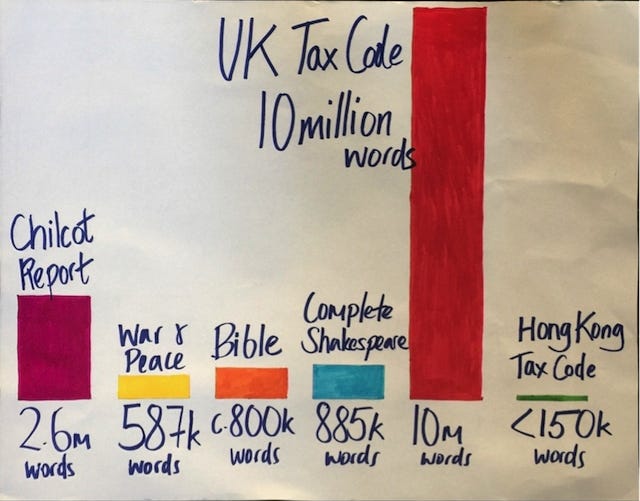 UK Tax Code
10 million
words
Chilcot
Report
War &
Peace
Bible
Complete
Shakespeare
Hong Kong
Tax Code
2.6m
words
587k
words
c.800k
words
885k
words
10m
words
<150k
words